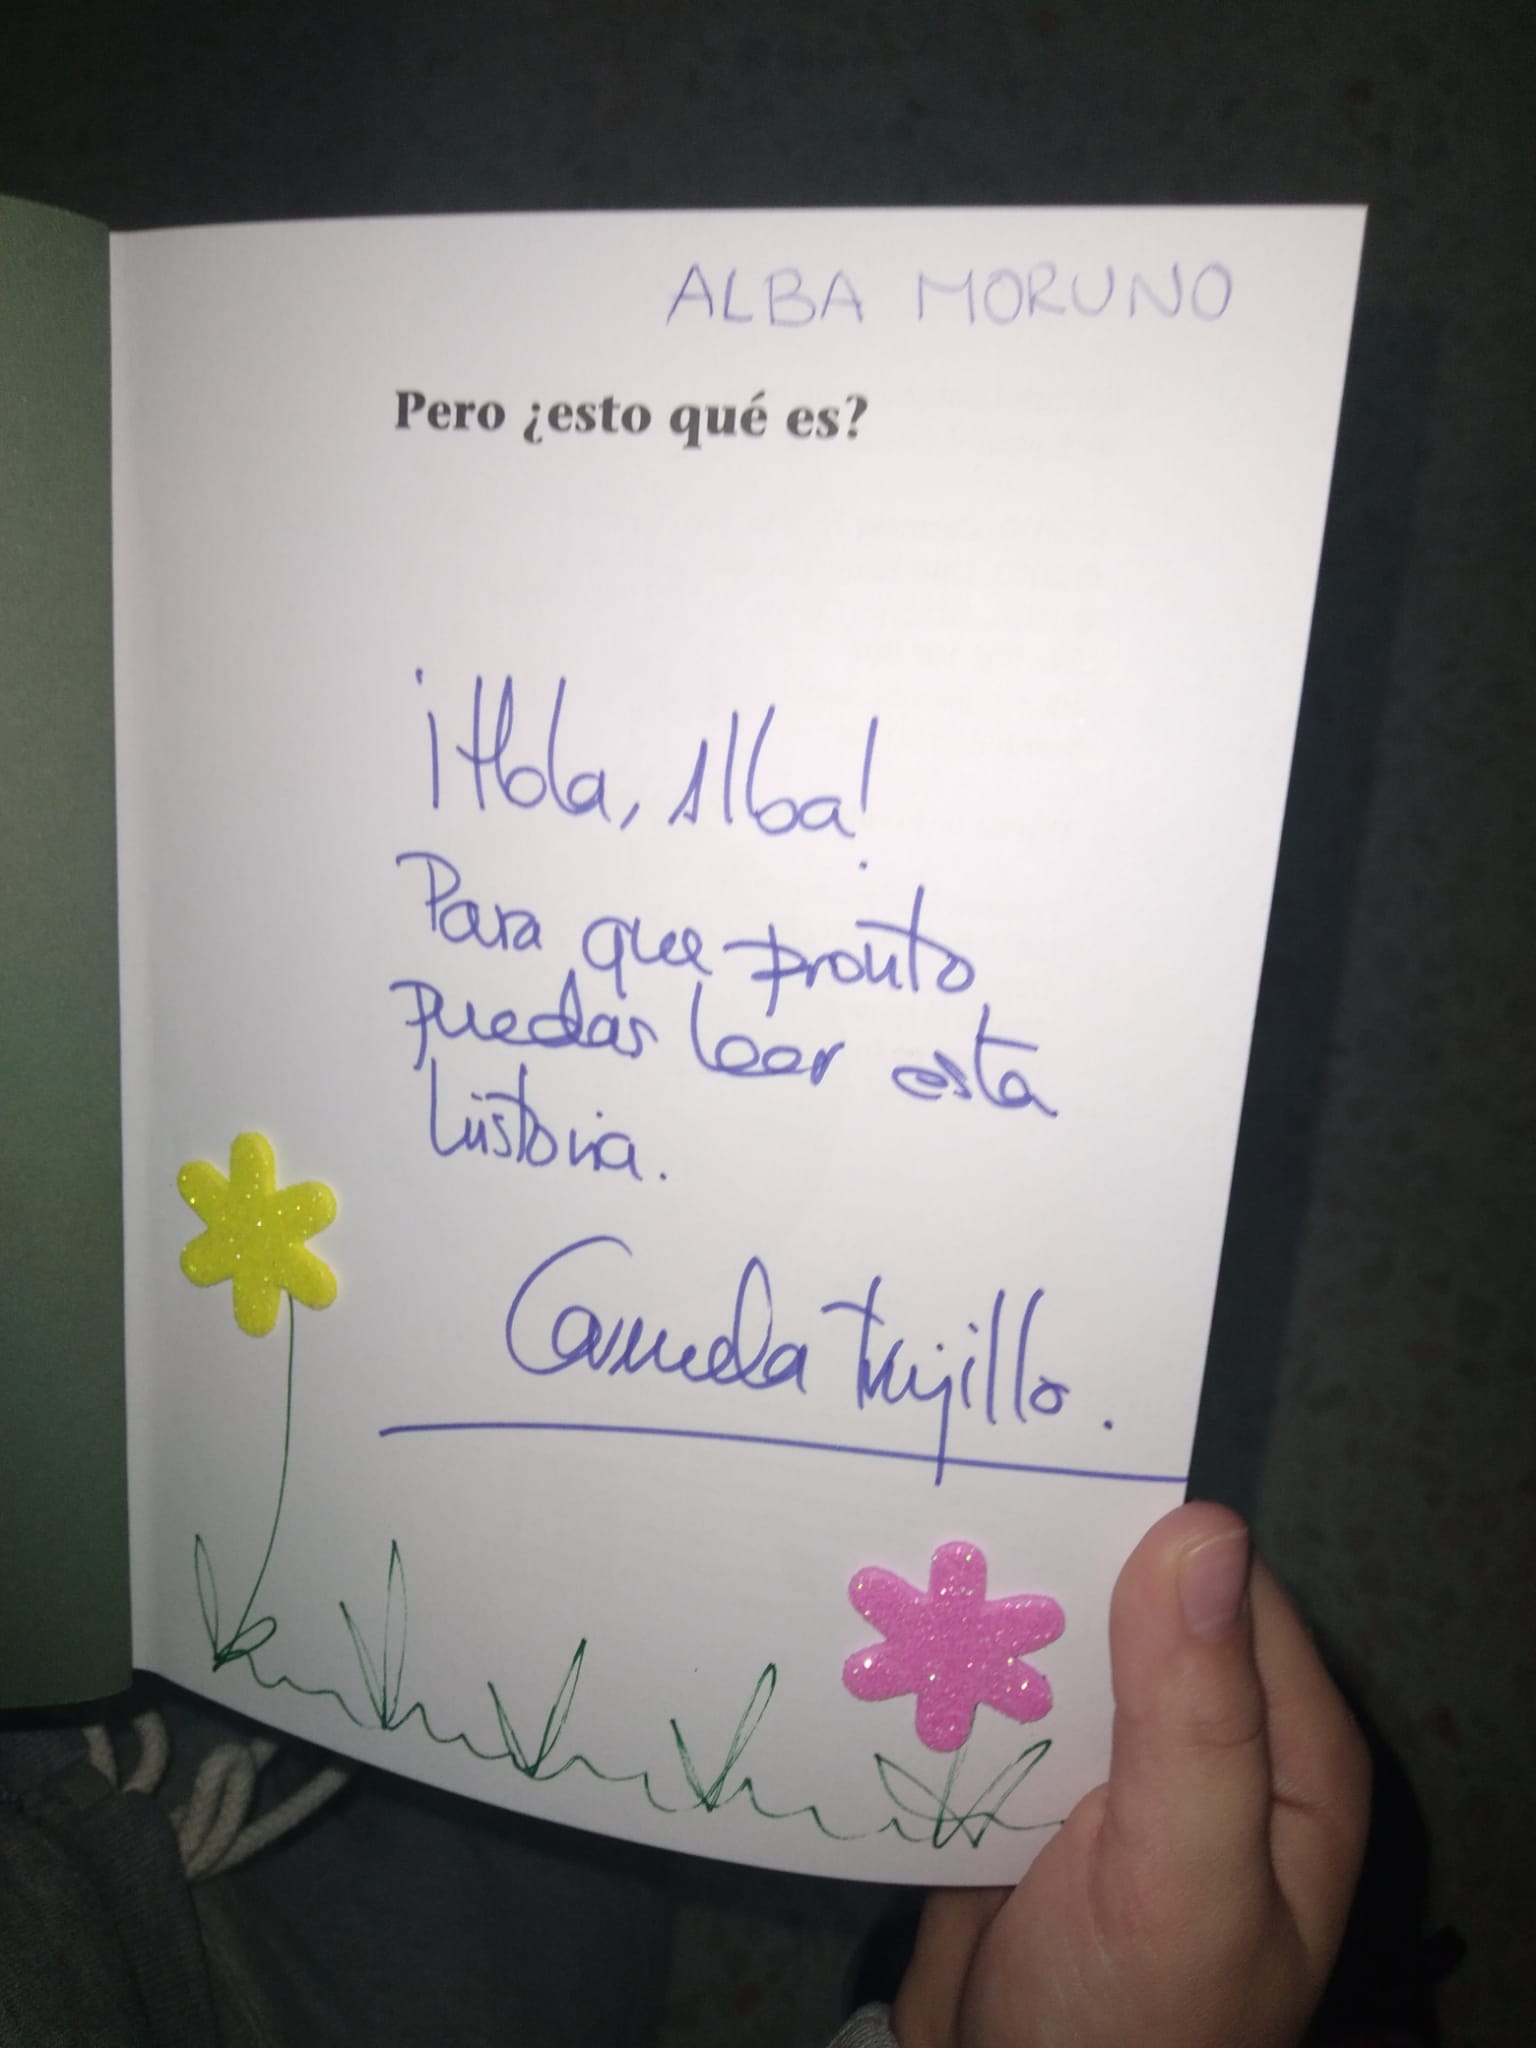 ALBA MORUNO
Pero ¿esto qué es?
¡Hola, Alba!
Para que pronto
puedas leer esta
historia.
Carmela Trujillo.